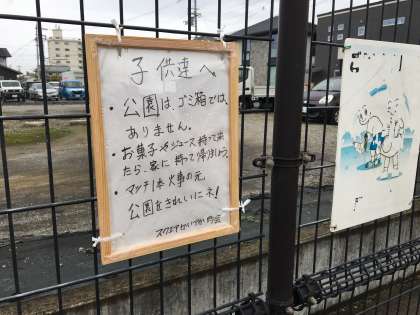 子供達へ
・公園は、ゴミ箱では、
ありません。
・お菓子やジュース持って来
たら、家に持って帰りましょう。
・マッチ1本火事の元。
公園をきれいにネ!